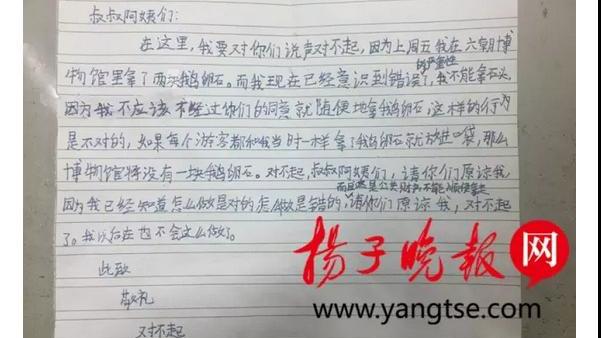 叔叔阿姨们:
在这里,我要对你们说声对不起,因为上周五我在六朝博
物馆里拿了两次鹅卵石。而我现在已经意识到错误了,我不能拿石头,
的严重性
因为我不应该不经过你们的同意就随便地拿鹅卵石,这样的行为
是不对的,如果每个游客都和我当时一样拿了鹅卵石就放进口袋,那么
博物馆将没有一块鹅卵石。对不起,叔叔阿姨们,请你们原谅我
而且这是公共财产,不能随便拿走
因为我已经知道怎么做是对的怎么做是错的,请你们原谅我,对不起
了。我以后在也不会这么做了。
此致
敬礼
对不起
扬子晚报网
www.yangtse.com